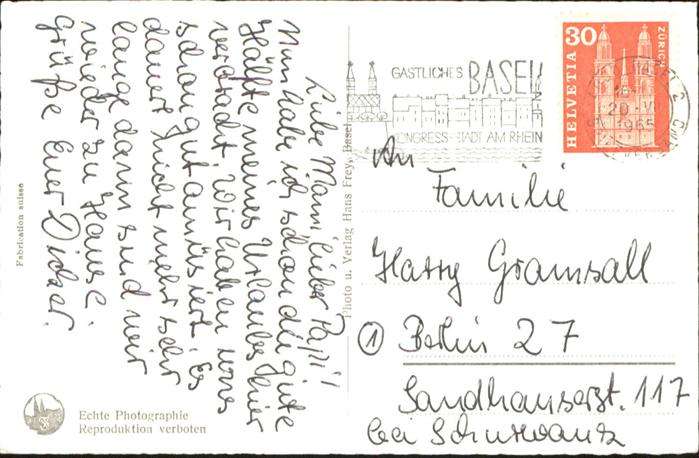 Liebe Mami, lieber Papi!
Nun habe ich schon die gute
Hälfte meines Urlaubes hier
verbracht. Wir haben uns
schon gut amüsiert. Es
dauert nicht mehr sehr
lange dann sind wir
wieder zu Hause.
Grüße Euer Dicker.
Fabrication suisse
Echte Photographie
Reproduktion verboten
Photo u. Verlag Hans Frey, Basel
GASTLICHES BASEL
KONGRESS-STADT AM RHEIN
30
HELVETIA
ZÜRICH
BASEL 2
20. VI.
1965
An
Familie
Harry Gramsall
1 Berlin 27
Sandhauserst. 117
bei Schuwanz